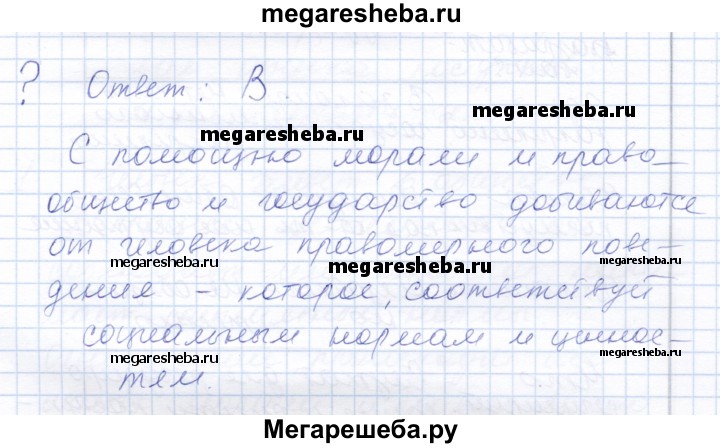 megaresheba.ru
? Ответ: В.
megaresheba.ru
megaresheba.ru
С помощью морали и право
общество и государство добиваются
от человека правомерного пове-
megaresheba.ru
megaresheba.ru
дения – которое, соответствует
социальным нормам и ценнос-
megaresheba.ru
megaresheba.ru
тям.
Мегарешеба.ру